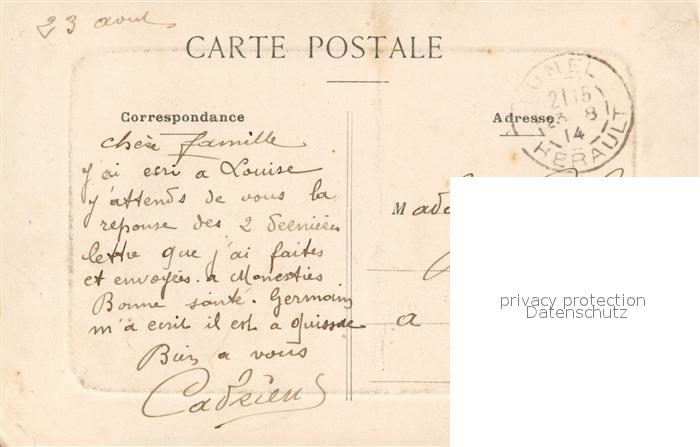 23 aout
CARTE POSTALE
Correspondance
Adresse
LUNEL
21 15
23 8
14
HERAULT
chère famille
J'ai ecri a Louise
J'attends de vous la
reponse des 2 dernières
lettre que j'ai faites
et envoyées a Monesties
Bonne santé. Germain
m'a ecrit il est a Quissac
Bien a vous
Madame
a
privacy protection
Datenschutz